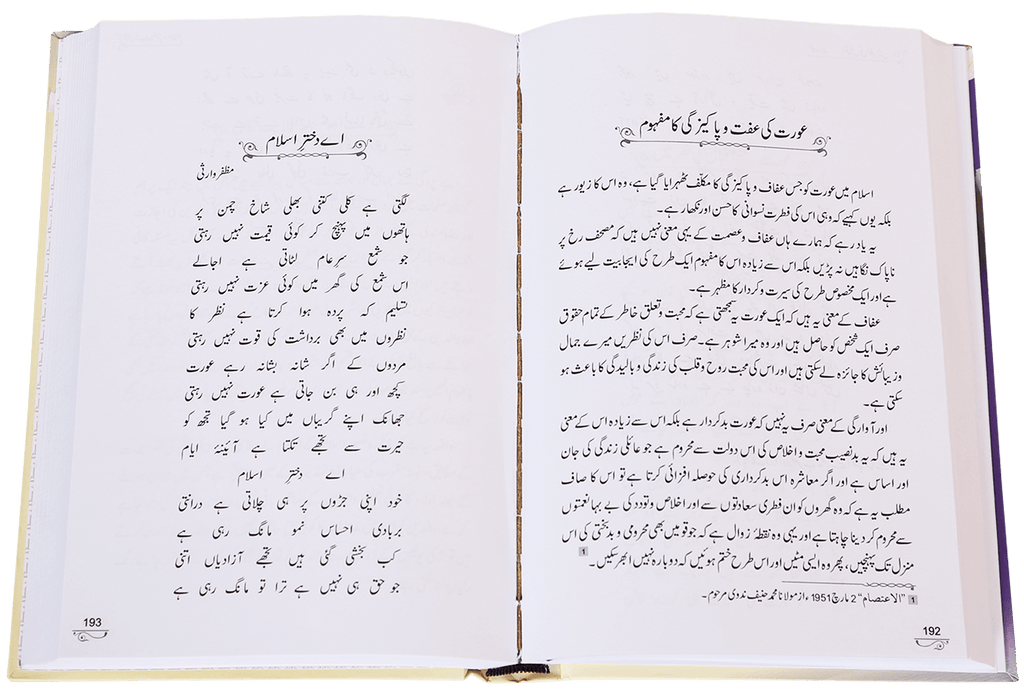 عورت کی عفت و پاکیزگی کا مفہوم
اسلام میں عورت کو جس عفاف و پاکیزگی کا مکلّف ٹھہرایا گیا ہے، وہ اس کا زیور ہے
بلکہ یوں کہیے کہ وہی اس کی فطرت نسوانی کا حسن اور نکھار ہے۔
یہ یاد رہے کہ ہمارے ہاں عفاف و عصمت کے یہی معنی نہیں ہیں کہ مصحف رخ پر
ناپاک نگاہیں نہ پڑیں بلکہ اس سے زیادہ اس کا مفہوم ایک طرح کی ایجابیت لیے ہوئے
ہے اور ایک مخصوص طرح کی سیرت و کردار کا مظہر ہے۔
عفاف کے معنی یہ ہیں کہ ایک عورت یہ سمجھتی ہے کہ محبت و تعلق خاطر کے تمام حقوق
صرف ایک شخص کو حاصل ہیں اور وہ میرا شوہر ہے۔ صرف اس کی نظریں میرے جمال
و زیبائش کا جائزہ لے سکتی ہیں اور اس کی محبت روح و قلب کی زندگی و بالیدگی کا باعث ہو
سکتی ہے۔
اور آوارگی کے معنی صرف یہ نہیں کہ عورت بدکردار ہے بلکہ اس سے زیادہ اس کے معنی
یہ ہیں کہ یہ بدنصیب محبت و اخلاص کی اس دولت سے محروم ہے جو عائلی زندگی کی جان
اور اساس ہے اور اگر معاشرہ اس بدکرداری کی حوصلہ افزائی کرتا ہے تو اس کا صاف
مطلب یہ ہے کہ وہ گھروں کو ان فطری سعادتوں سے اور اخلاص و تودد کی بے بہا نعمتوں
سے محروم کر دینا چاہتا ہے اور یہی وہ نقطۂ زوال ہے کہ جو قومیں بھی محرومی و بدبختی کی اس
منزل تک پہنچیں، پھر وہ ایسی مٹیں اور اس طرح ختم ہوئیں کہ دوبارہ نہیں ابھر سکیں۔ 1
1 ”الاعتصام“ 2 مارچ 1951ء از مولانا محمد حنیف ندوی مرحوم۔
192
اے دخترِ اسلام
مظفر وارثی
لگتی ہے کلی کتنی بھلی شاخِ چمن پر
ہاتھوں میں پہنچ کر کوئی قیمت نہیں رہتی
جو شمع سرِعام لٹاتی ہے اجالے
اس شمع کی گھر میں کوئی عزت نہیں رہتی
تسلیم کہ پردہ ہوا کرتا ہے نظر کا
نظروں میں بھی برداشت کی قوت نہیں رہتی
مردوں کے اگر شانہ بشانہ رہے عورت
کچھ اور ہی بن جاتی ہے عورت نہیں رہتی
جھانک اپنے گریباں میں کیا ہو گیا تجھ کو
حیرت سے تجھے تکتا ہے آئینۂ ایام
اے دخترِ اسلام
خود اپنی جڑوں پر ہی چلاتی ہے درانتی
بربادی احساس نمو مانگ رہی ہے
کب بخشی گئی ہیں تجھے آزادیاں اتنی
جو حق ہی نہیں ہے ترا تو مانگ رہی ہے
193